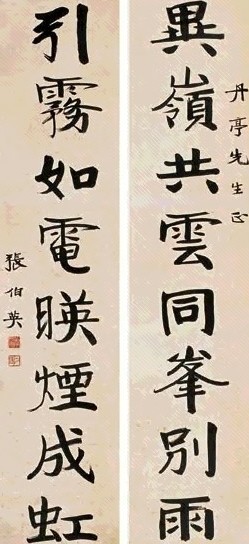 異嶺共雲同峯別雨
丹亭先生正
引霧如電暎煙成虹
張伯英